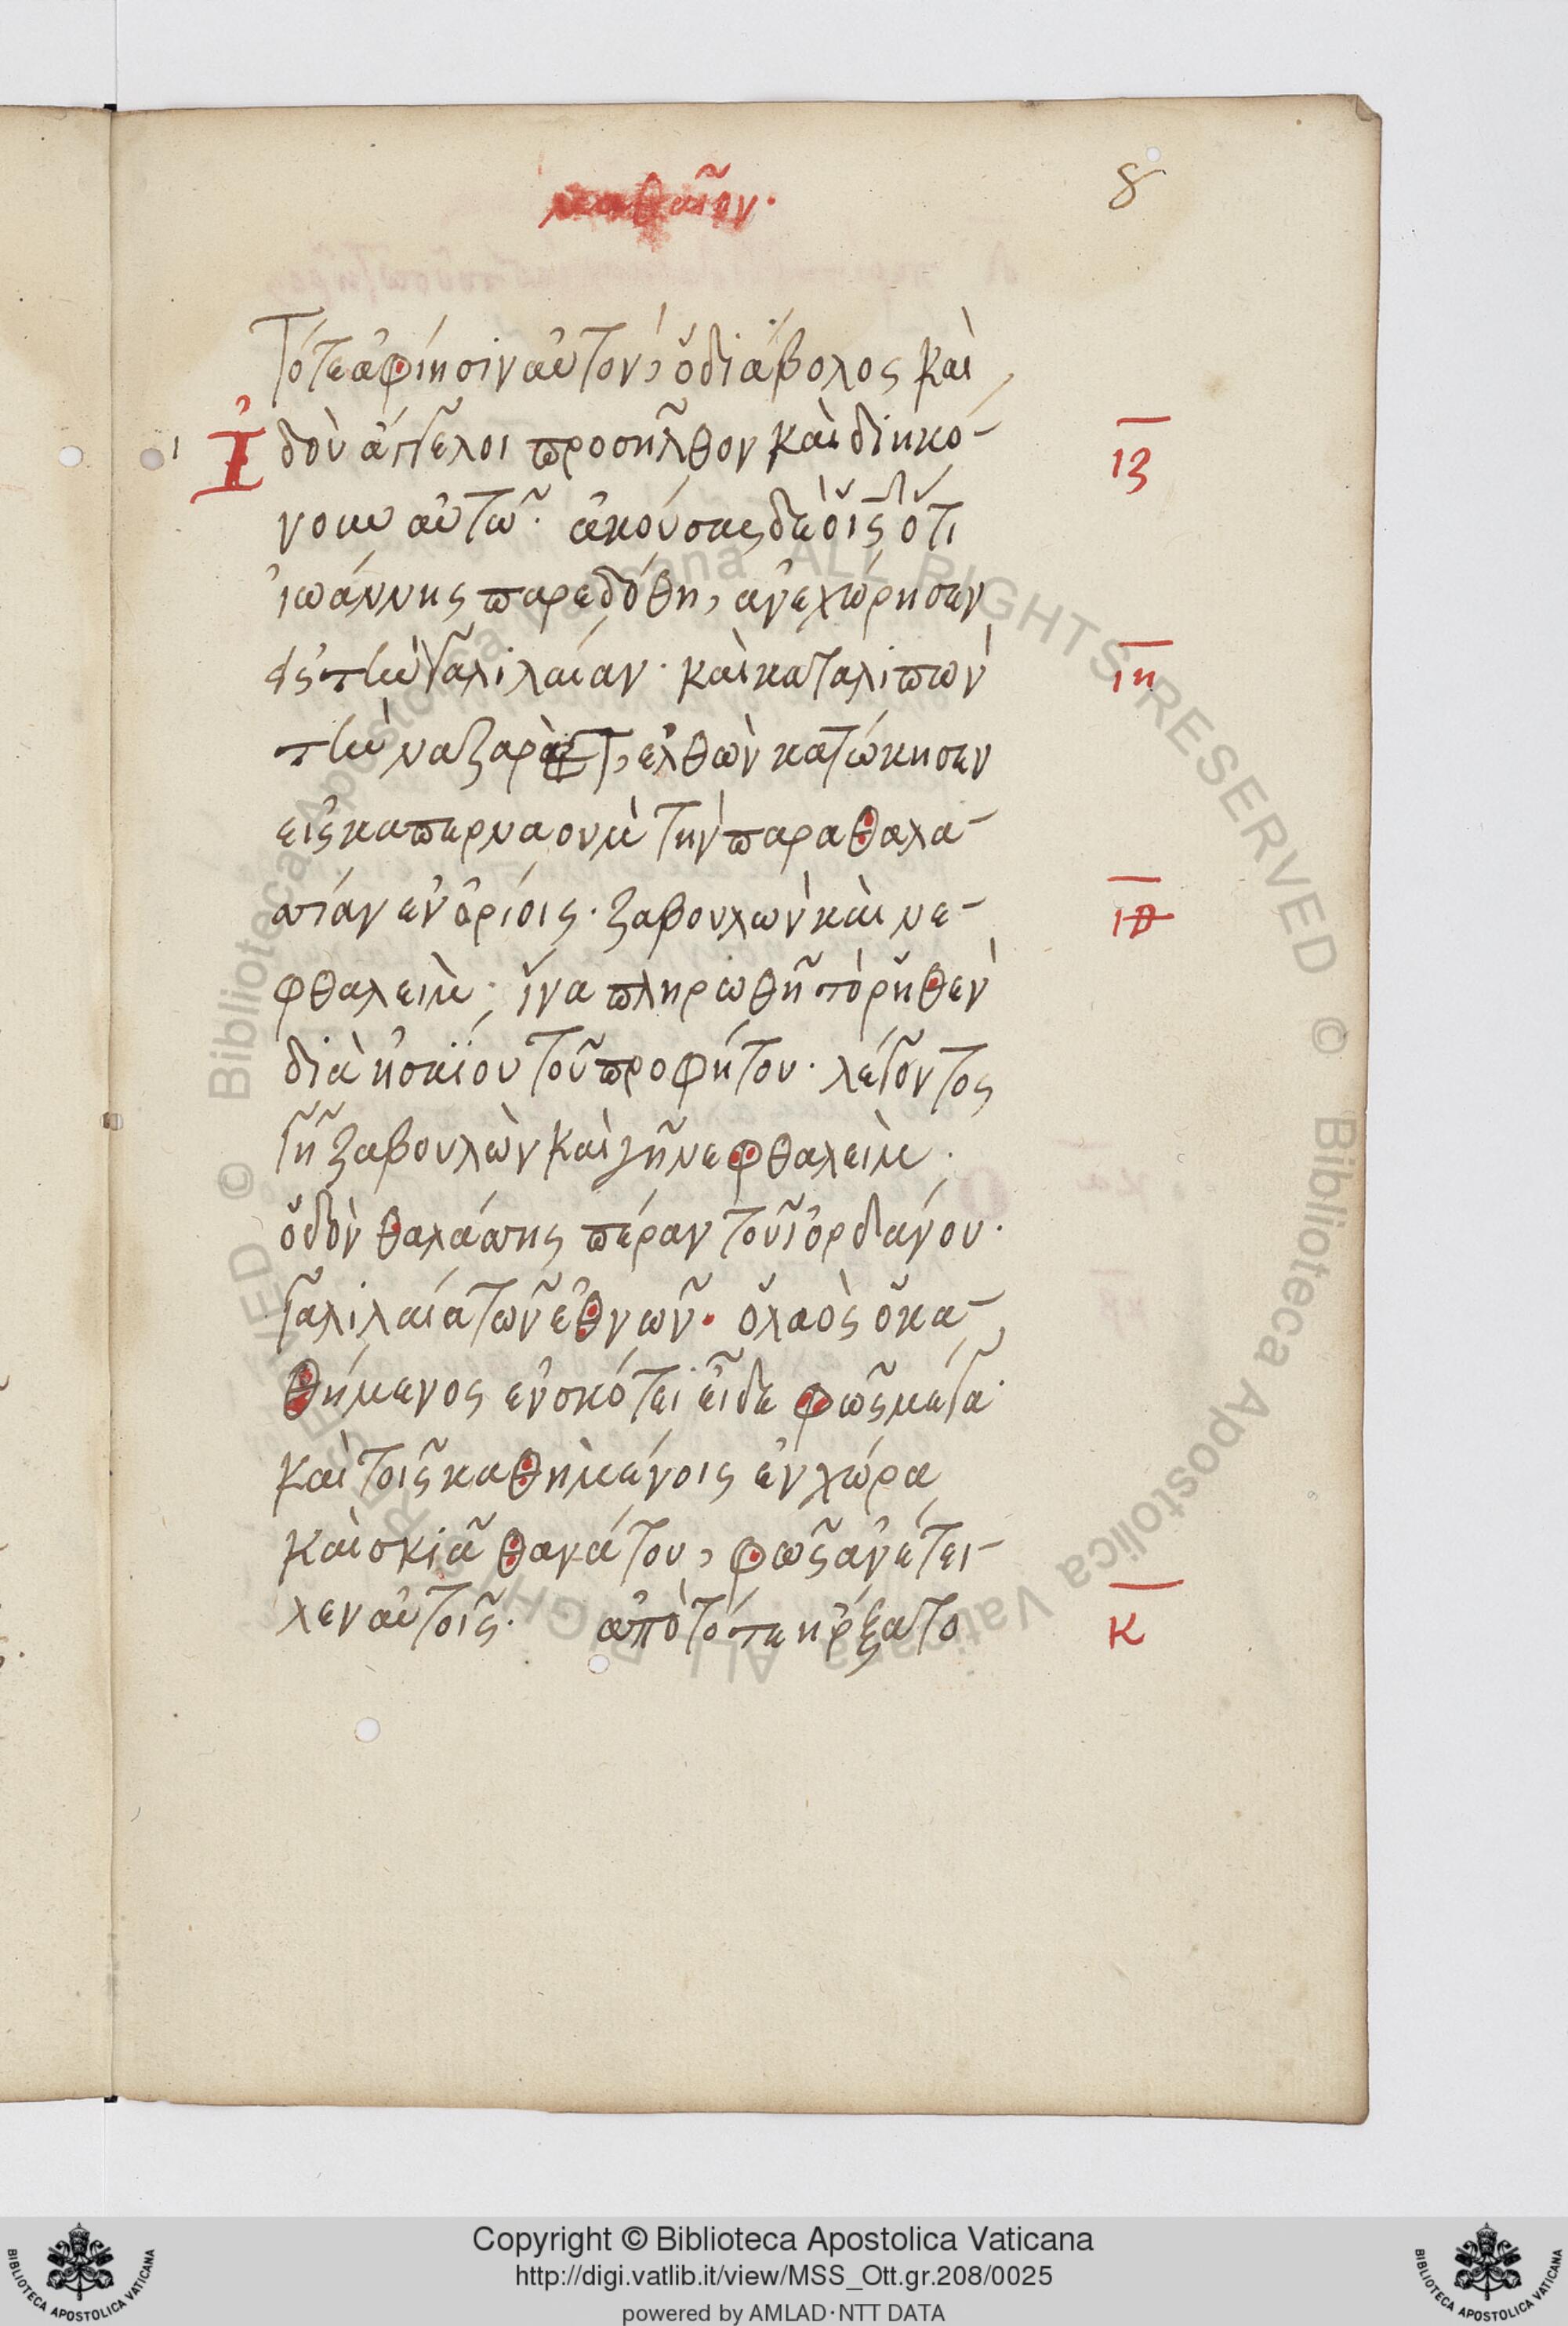 μαθαῖον.
8
Τότε ἀφίησιν αὐτὸν, ὁ διάβολος καὶ
Ἰδοὺ ἄγγελοι προσῆλθον καὶ διηκό-
ιζ
νουν αὐτῶ. ἀκούσας δὲ ὁ ις ὅτι
ἰωάννης παρεδόθη, ἀνεχώρησεν
εἰς τὴν γαλιλαίαν. καὶ καταλιπὼν
ιη
τὴν ναζαρὲτ, ἐλθὼν κατώκησεν
εἰς καπερναοὺμ τὴν παραθαλα-
σσίαν ἐν ὁρίοις. ζαβουλὼν καὶ νε-
ιθ
φθαλείμ. ἵνα πληρωθῆ τὸ ῥηθὲν
διὰ ἠσαΐου τοῦ προφήτου. λέγοντος
γῆ ζαβουλὼν καὶ γῆ νεφθαλείμ.
ὁδὸν θαλάσσης πέραν τοῦ ἰορδάνου.
γαλιλαία τῶν ἐθνῶν. ὁ λαὸς ὁ κα-
θήμενος ἐν σκότει εἶδε φῶς μέγα.
καὶ τοῖς καθημένοις ἐν χώρα
καὶ σκιᾶ θανάτου, φῶς ἀνέτει-
λεν αὐτοῖς. ἀπὸ τότε ἤρξατο
κ
© Biblioteca Apostolica Vaticana ALL RIGHTS RESERVED © Biblioteca Apostolica Vaticana ALL RIGHTS RESERVED
BIBLIOTECA APOSTOLICA VATICANA
Copyright © Biblioteca Apostolica Vaticana
http://digi.vatlib.it/view/MSS_Ott.gr.208/0025
powered by AMLAD·NTT DATA
BIBLIOTECA APOSTOLICA VATICANA